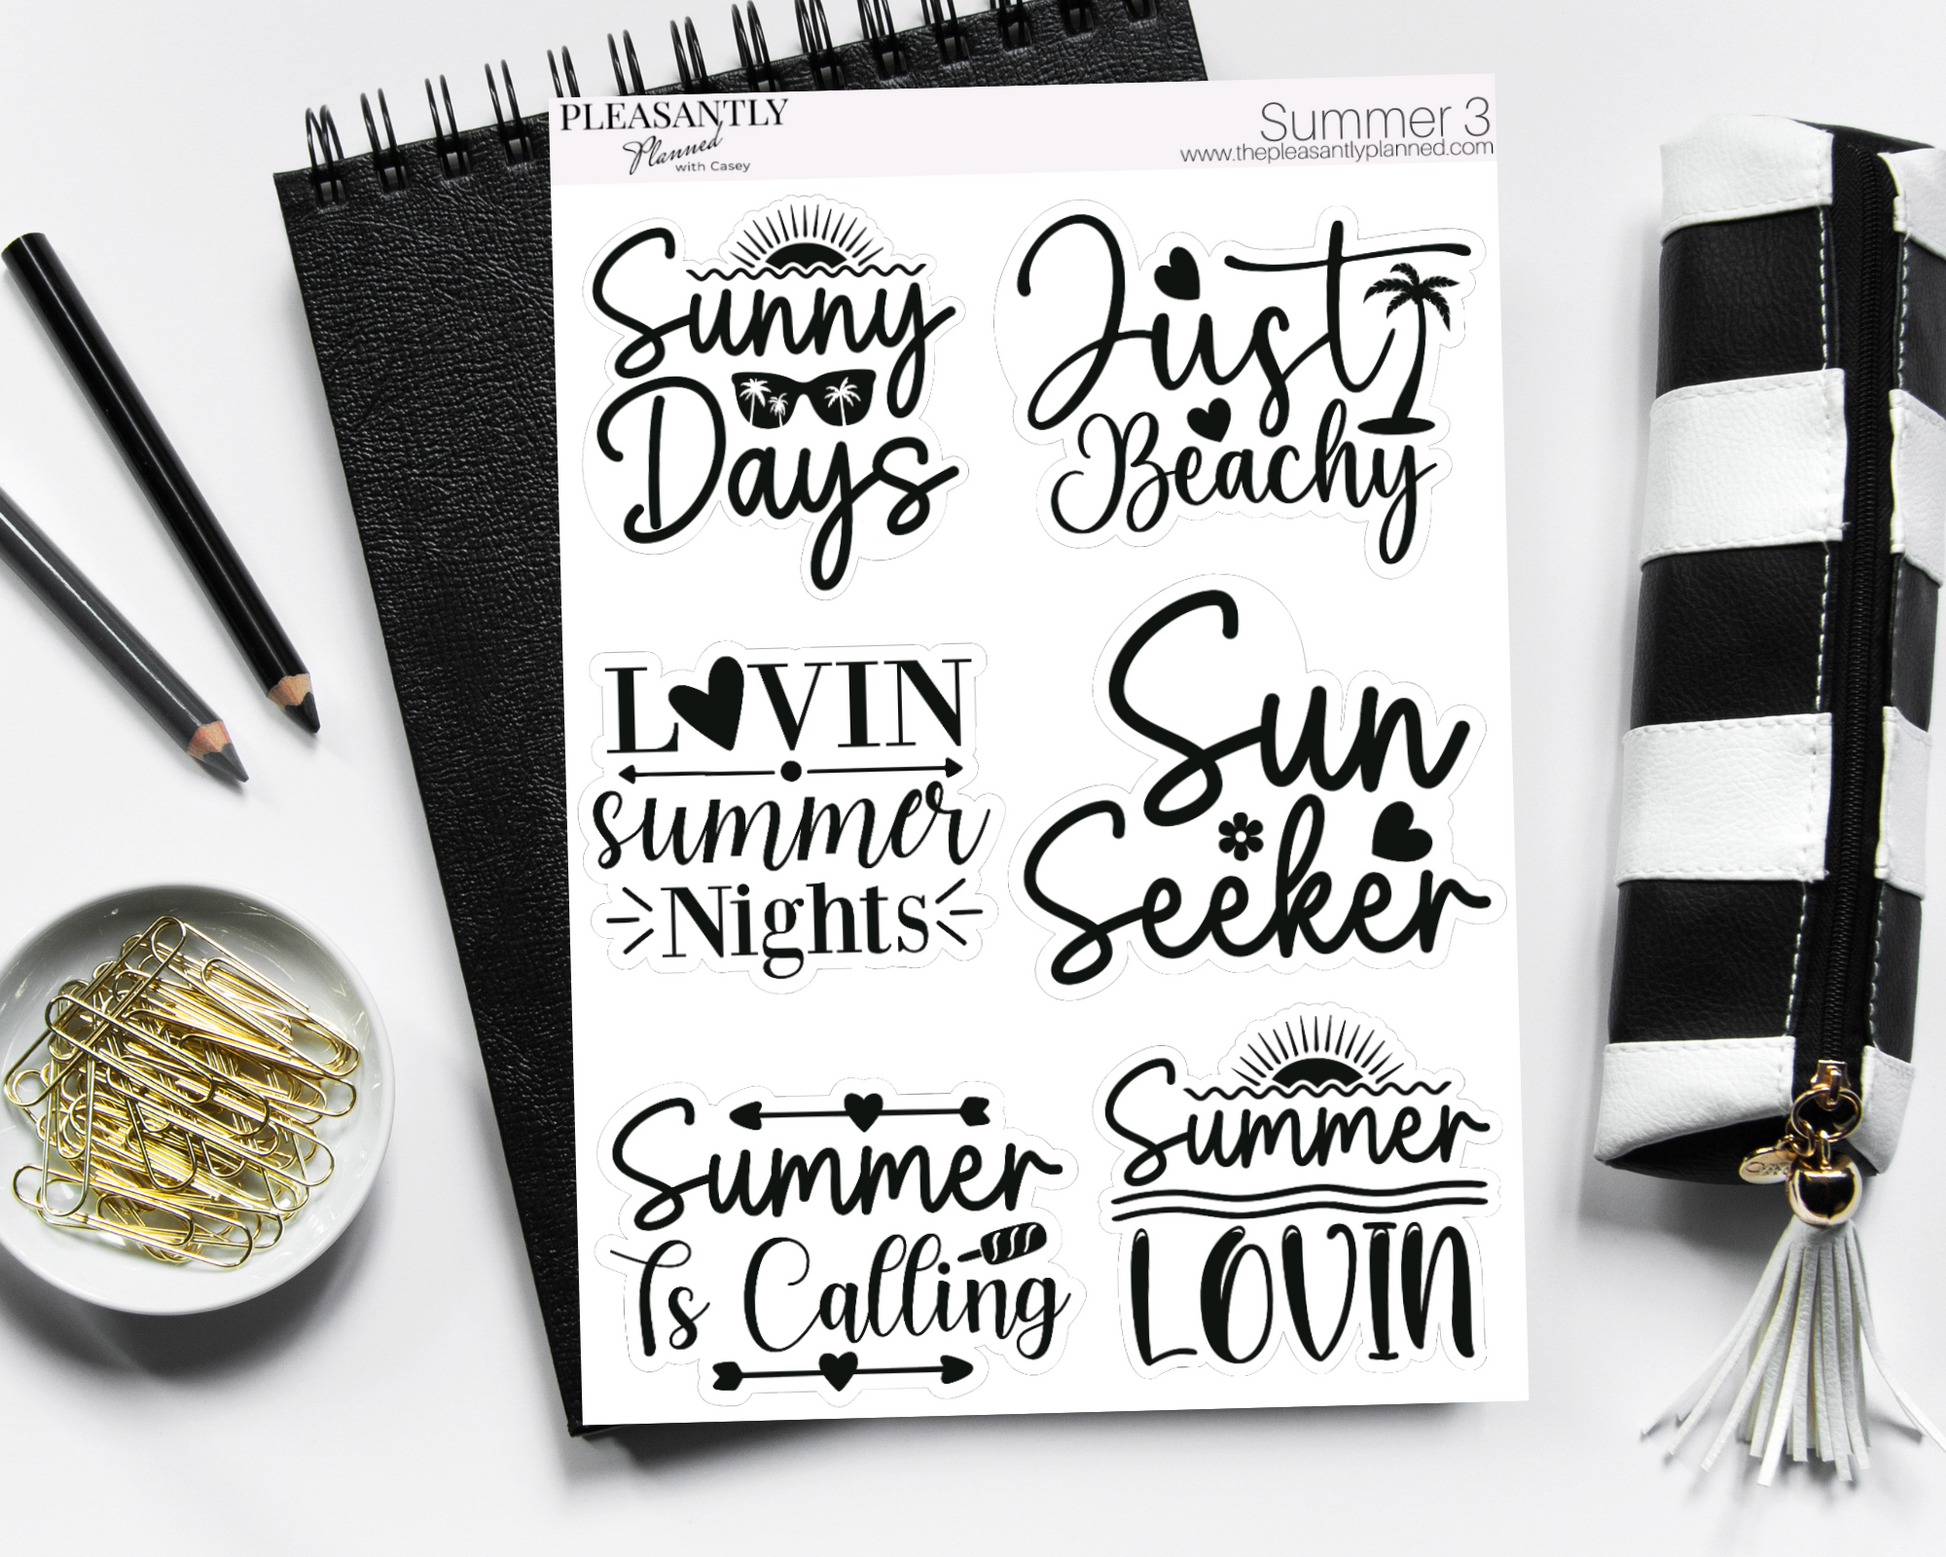 PLEASANTLY
Planned
with Casey
Summer 3
www.thepleasantlyplanned.com
Sunny
Days
Just
Beachy
LOVIN
summer
Nights
Sun
Seeker
Summer
Is Calling
Summer
LOVIN